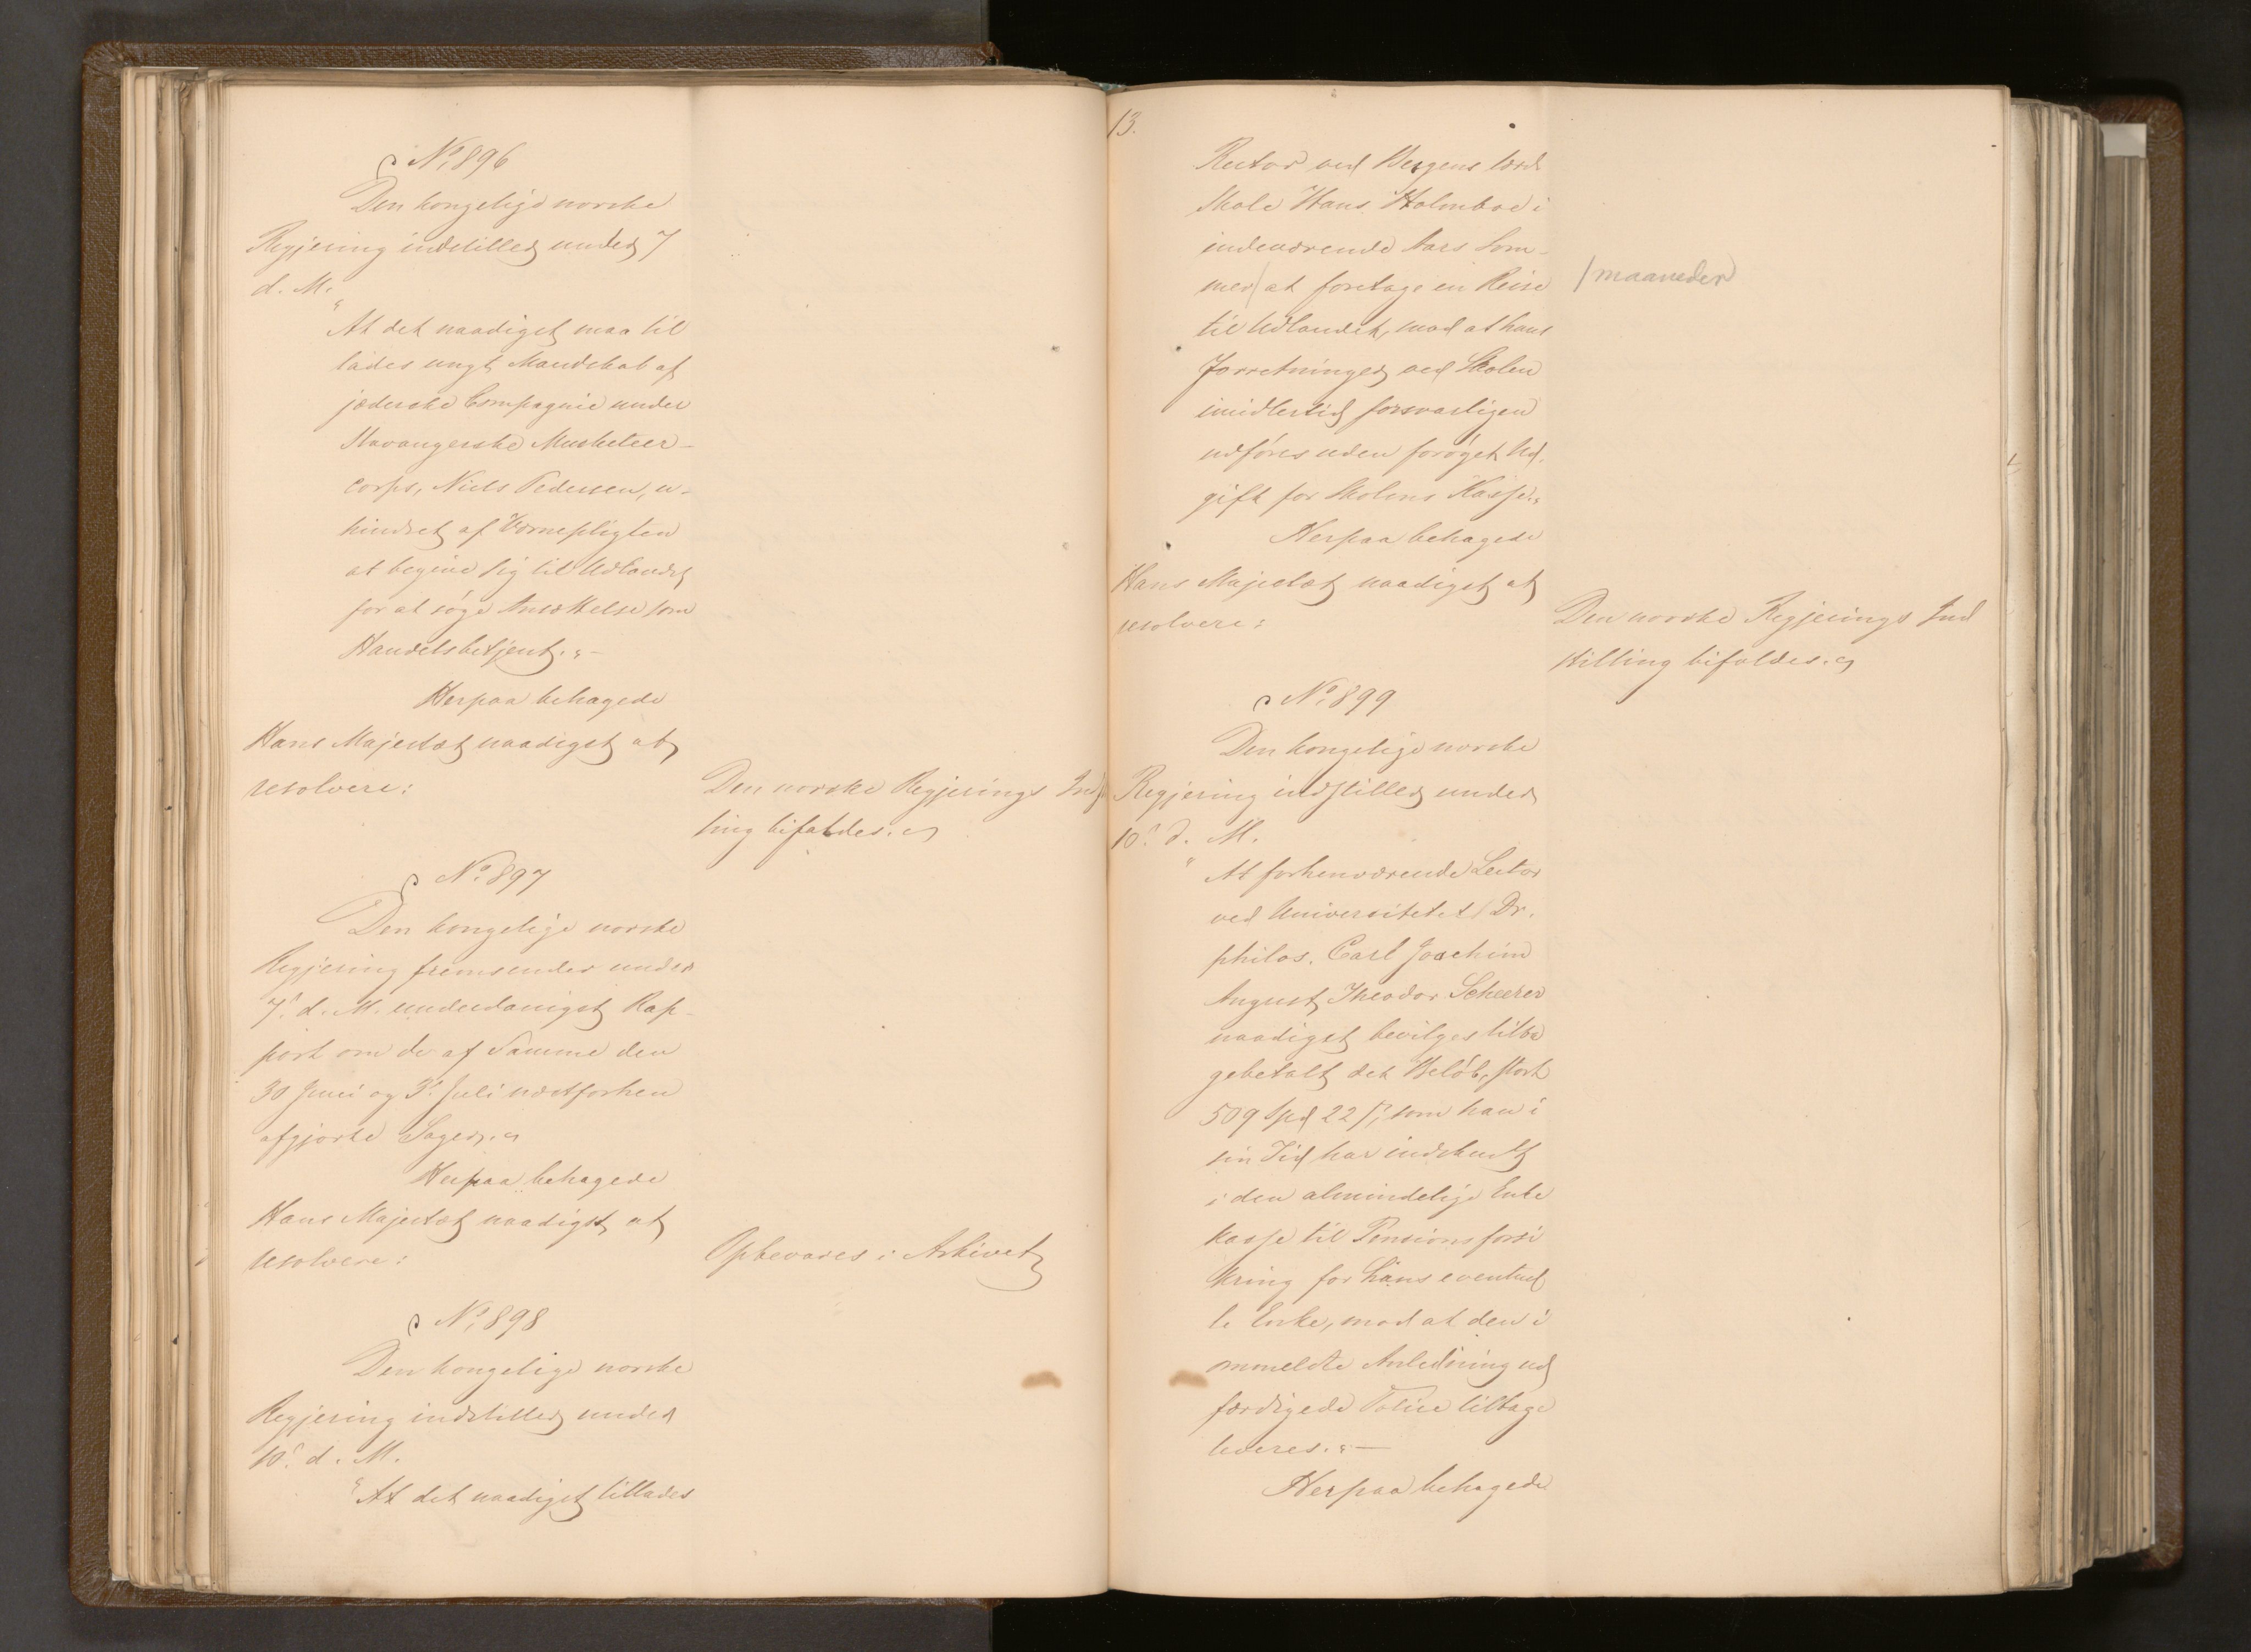 No. 896
Den kongelige norske
Regjering indstiller under 7
d. M.
"At det naadigst maa til
lades ungt Mandskab af
jæderske Compagnie under
Stavangerske Musketeer-
corps, Niels Pedersen, u-
hindret af Værnepligten
at begive sig til Udlandet
for at søge Ansættelse som
Handelsbetjent."-
Herpaa behagede
Hans Majestæt naadigst at
resolvere:
Den norske Regjerings Inds
ling bifaldes.
No. 897
Den kongelige norske
Regjering fremsender under
7. d. M. underdanigst Rap-
port om de af Samme den
30 Juni og 3. Juli næstforhen
afgjorte Sager.
Herpaa behagede
Hans Majestæt naadigst at
resolvere:
Opbevares i Arkivet
No. 898
Den kongelige norske
Regjering indstiller under
10. d. M.
"At det naadigst tillades
13.
Rector ved Bergens lærde
Skole Hans Holmboe i
indeværende Aars Som-
mer/ at foretage en Reise
/maaneder
til Udlandet, mod at hans
Forretninger ved Skolen
imidlertid forsvarligen
udføres uden forøget Ud-
gift for Skolens Kasse."
Herpaa behagede
Hans Majestæt naadigst at
resolvere:
Den norske Regjerings Ind
stilling bifaldes.
No. 899
Den kongelige norske
Regjering indstiller under
10. d. M.
"At forhenværende Lector
ved Universitetet Dr.
philos. Carl Joachim
August Theodor Scheerer
naadigst bevilges tilba
gebetalt det Beløb, stort
509 Spd 22 ß, som han i
sin Tid har indskudt
i den almindelige Enke
kasse til Pensionsforsi
kring for hans eventuel
le Enke, mod at den i
ommeldte Anledning ud
færdigede Police tilbage
leveres."-
Herpaa behagede